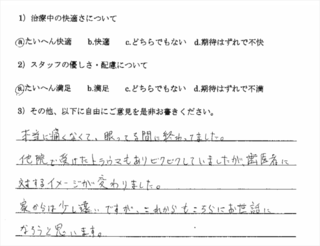 1）治療中の快適さについて
ⓐたいへん快適　b.快適　c.どちらでもない　d.期待はずれで不快
2）スタッフの優しさ・配慮について
ⓐたいへん満足　b.満足　c.どちらでもない　d.期待はずれで不満
3）その他、以下に自由にご意見を是非お書きください。
本当に痛くなくて、眠ってる間に終わってました。
他院で受けたトラウマもありビクビクしていましたが、歯医者に
対するイメージが変わりました。
家からは少し遠いですが、これからもこちらにお世話に
なろうと思います。